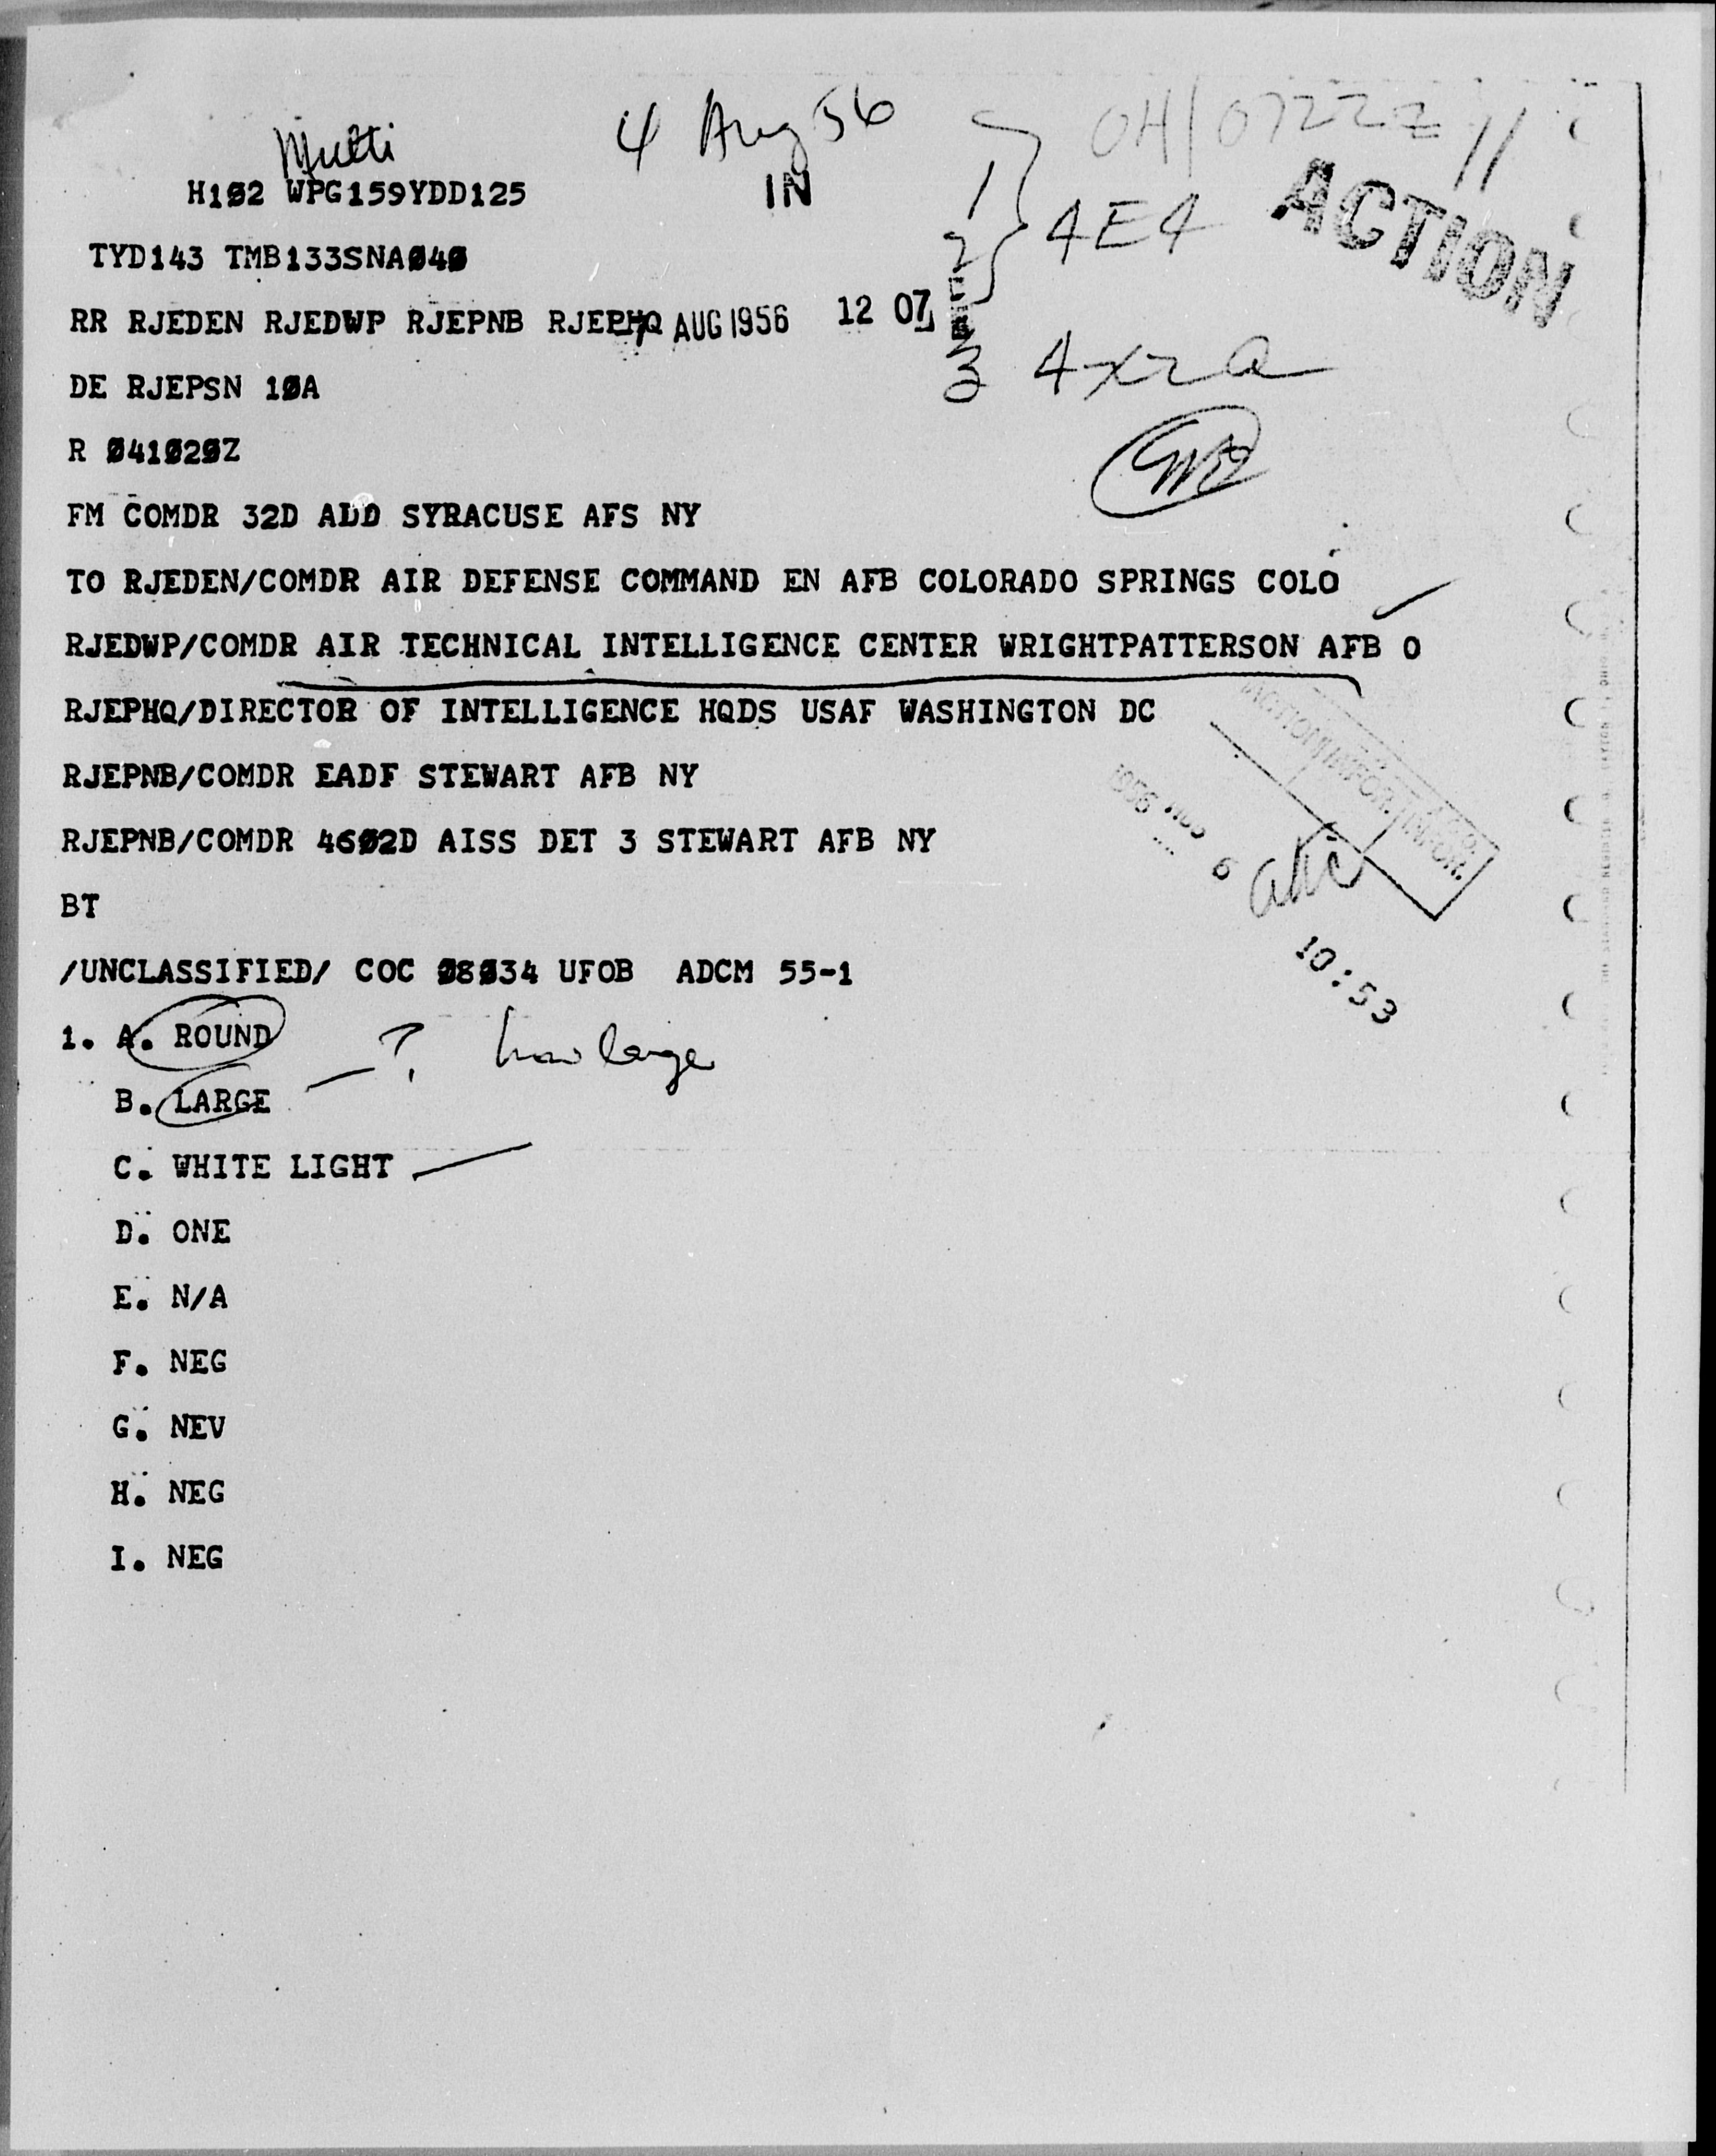 Multi
4 Aug 56
04/0722Z //
H102 WPG159YDD125
IN
1
2
4E4
ACTION
TYD143 TMB133SNA040
RR RJEDEN RJEDWP RJEPNB RJEPHQ
7 AUG 1956 12 07
3 4x2a
DE RJEPSN 10A
R 041020Z
FM COMDR 32D ADD SYRACUSE AFS NY
TO RJEDEN/COMDR AIR DEFENSE COMMAND EN AFB COLORADO SPRINGS COLO
RJEDWP/COMDR AIR TECHNICAL INTELLIGENCE CENTER WRIGHTPATTERSON AFB O
RJEPHQ/DIRECTOR OF INTELLIGENCE HQDS USAF WASHINGTON DC
ACTION INFOR. INFOR.
RJEPNB/COMDR EADF STEWART AFB NY
1956 AUG 6
RJEPNB/COMDR 4602D AISS DET 3 STEWART AFB NY
BT
10:53
/UNCLASSIFIED/ COC 08034 UFOB ADCM 55-1
1. A. ROUND
? how large
B. LARGE
C. WHITE LIGHT
D. ONE
E. N/A
F. NEG
G. NEV
H. NEG
I. NEG